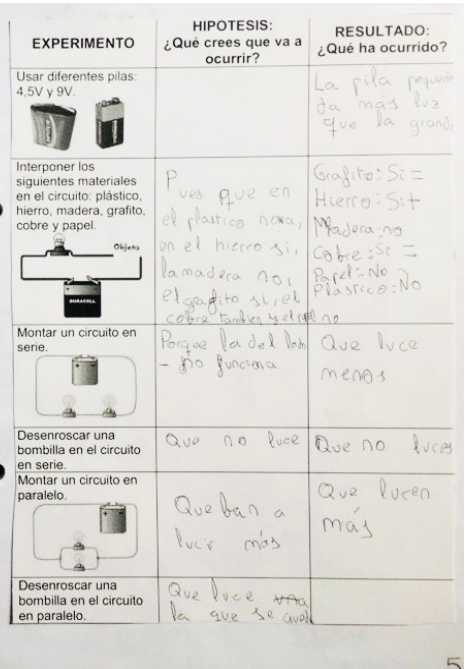 EXPERIMENTO
HIPOTESIS:
¿Qué crees que va a
ocurrir?
RESULTADO:
¿Qué ha ocurrido?
Usar diferentes pilas:
4,5V y 9V.
La pila pequeña
da más luz
que la grande
Interponer los
siguientes materiales
en el circuito: plástico,
hierro, madera, grafito,
cobre y papel.
Objeto
DURACELL
Pues que en
el plastico nova,
en el hierro si,
la madera no,
el grafito si, el
cobre tambien y el papel no
Grafito: Si =
Hierro: Si +
Madera: no
Cobre: Si =
Papel: No
Plastico: No
Montar un circuito en
serie.
Porque la del lado
- no funciona
Que luce
menos
Desenroscar una
bombilla en el circuito
en serie.
Que no luce
Que no luces
Montar un circuito en
paralelo.
Que ban a
lucir más
Que lucen
más
Desenroscar una
bombilla en el circuito
en paralelo.
Que luce
la que se
5